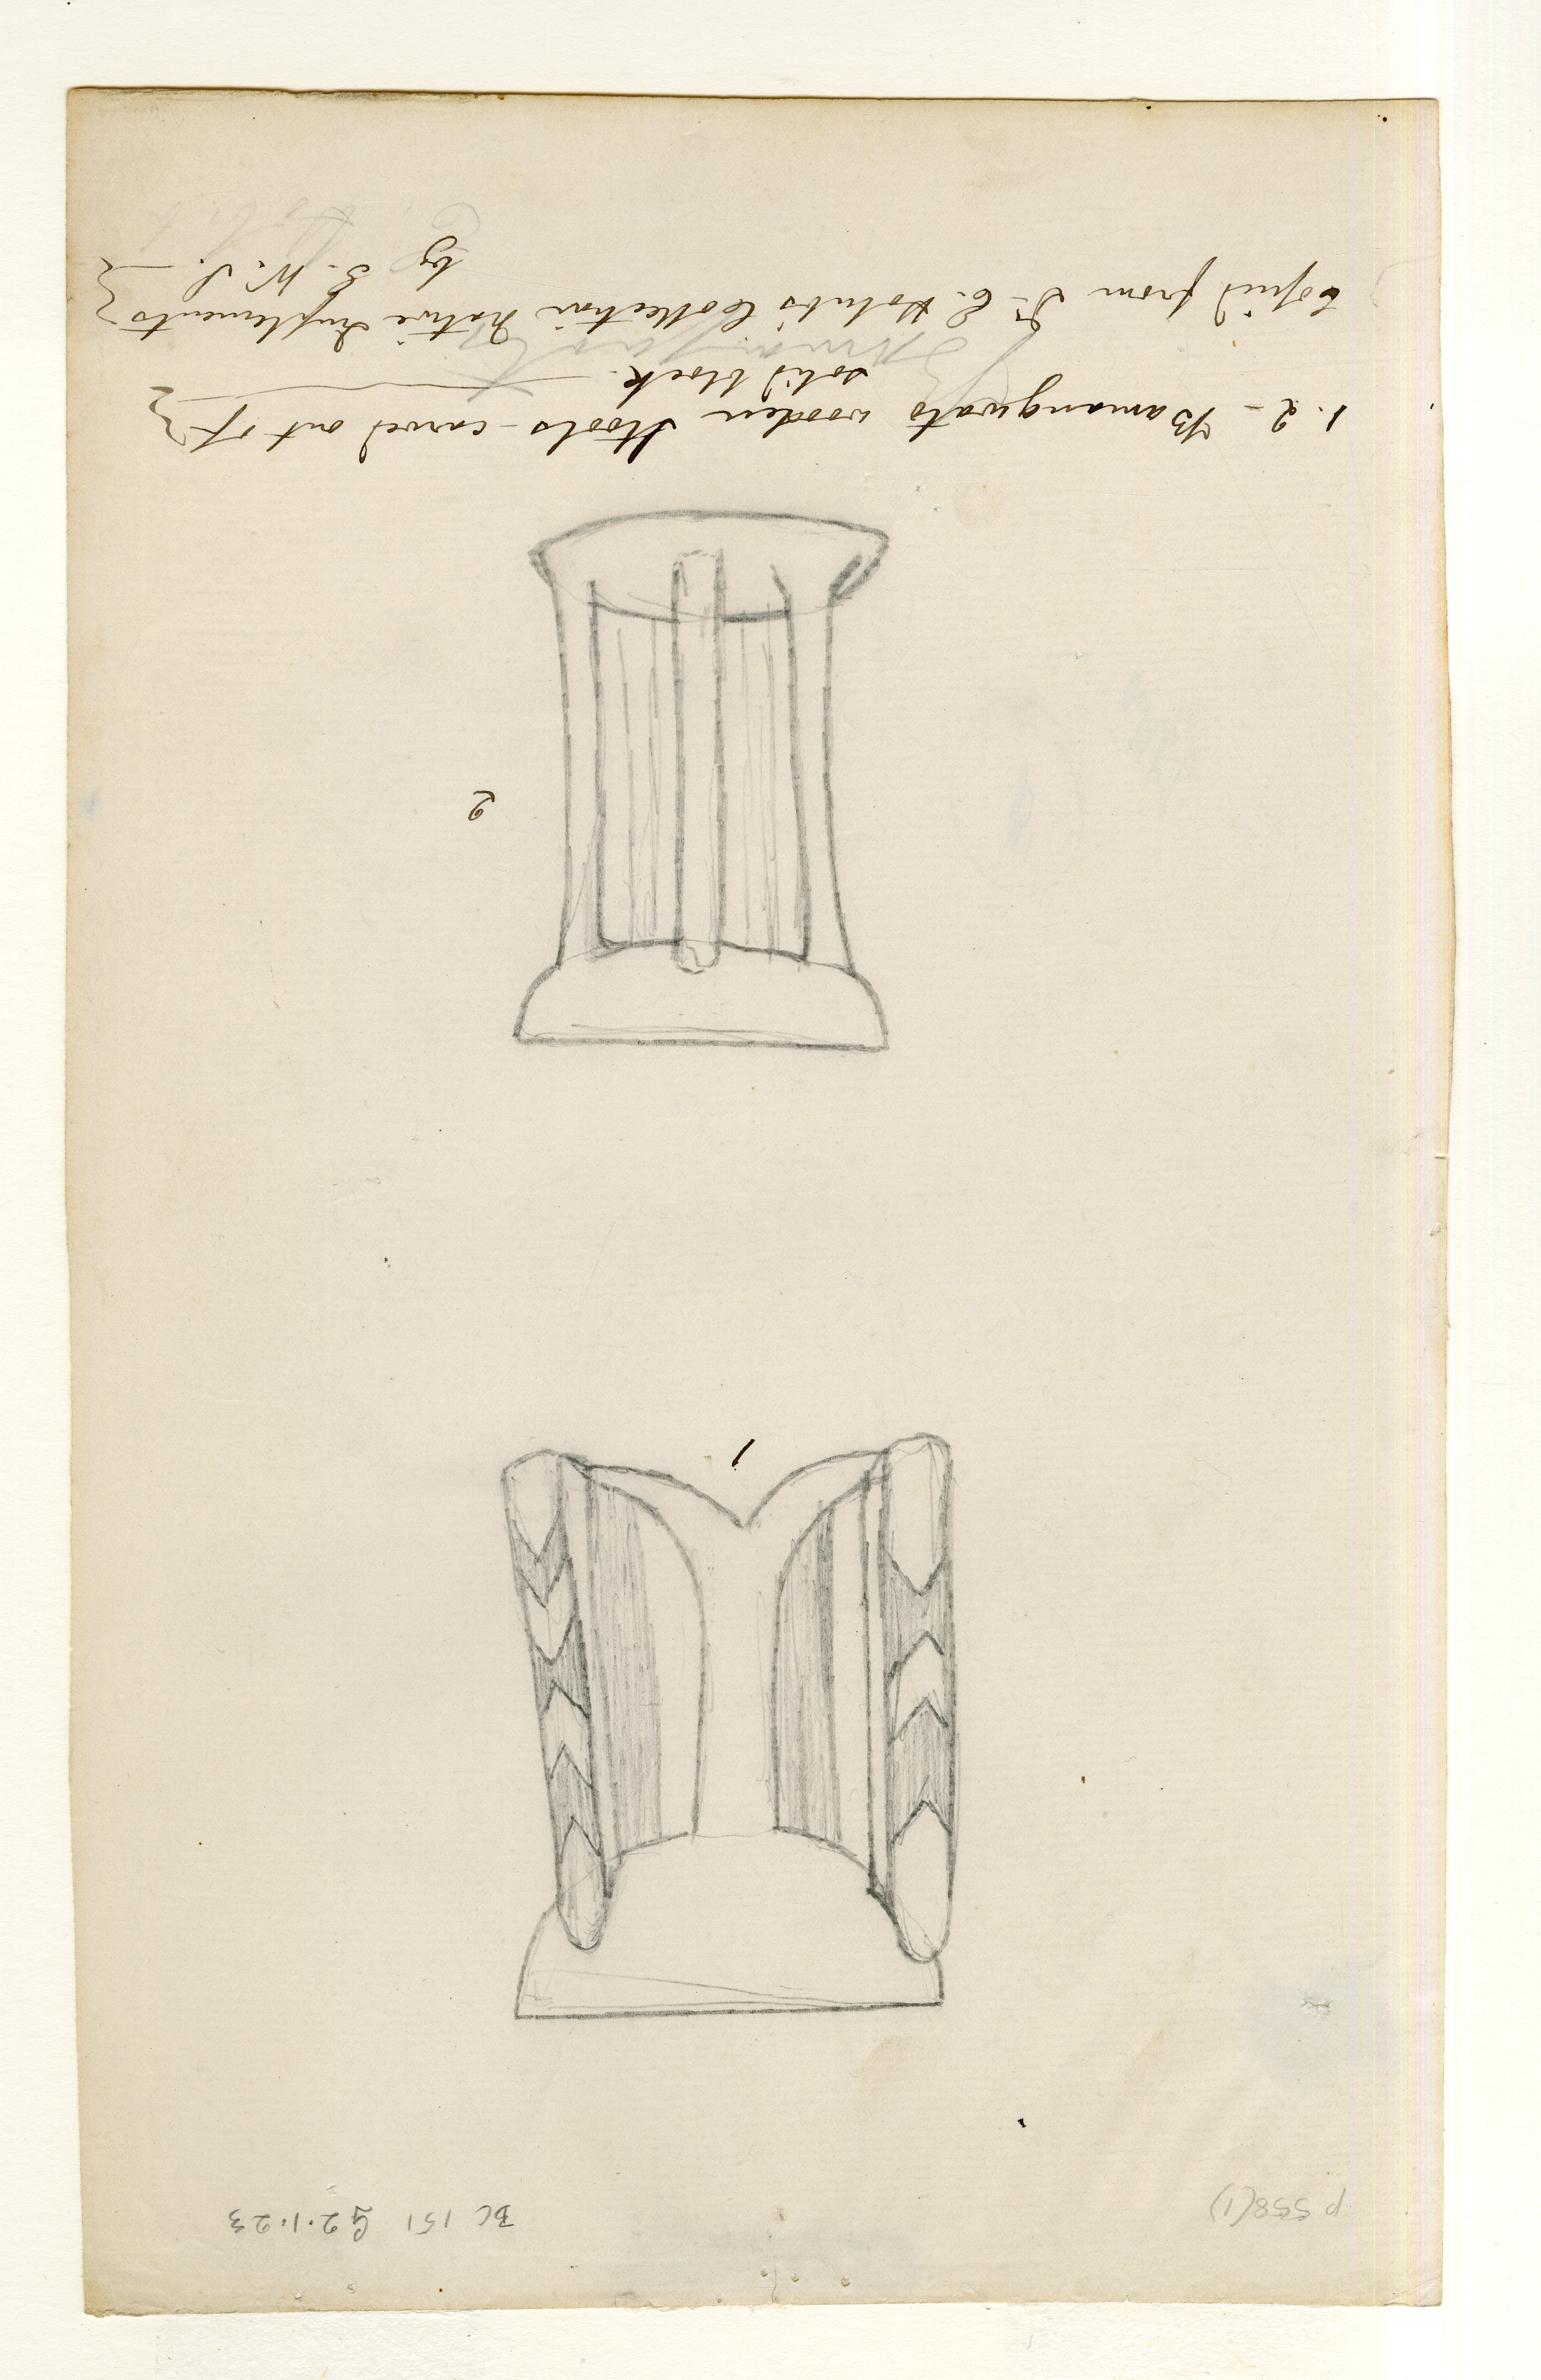 p 558(1)
BC 151 G2.1.23
1
2
1. 2 - Bamangwato wooden Stools - carved out of
solid block.
Copied from Dr. E. Holub's Collection Native Implements
by G. W. S.